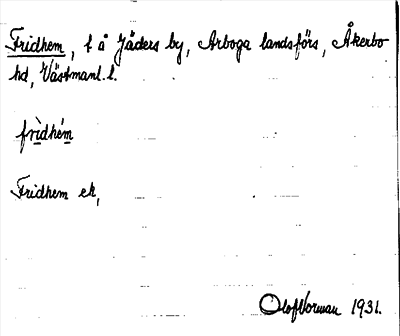 Fridhem, t å Jäders by, Arboga landsförs, Åkerbo
hd, Västmanl. l.
frìdhém
Fridhem ek,
Olof Norman 1931.